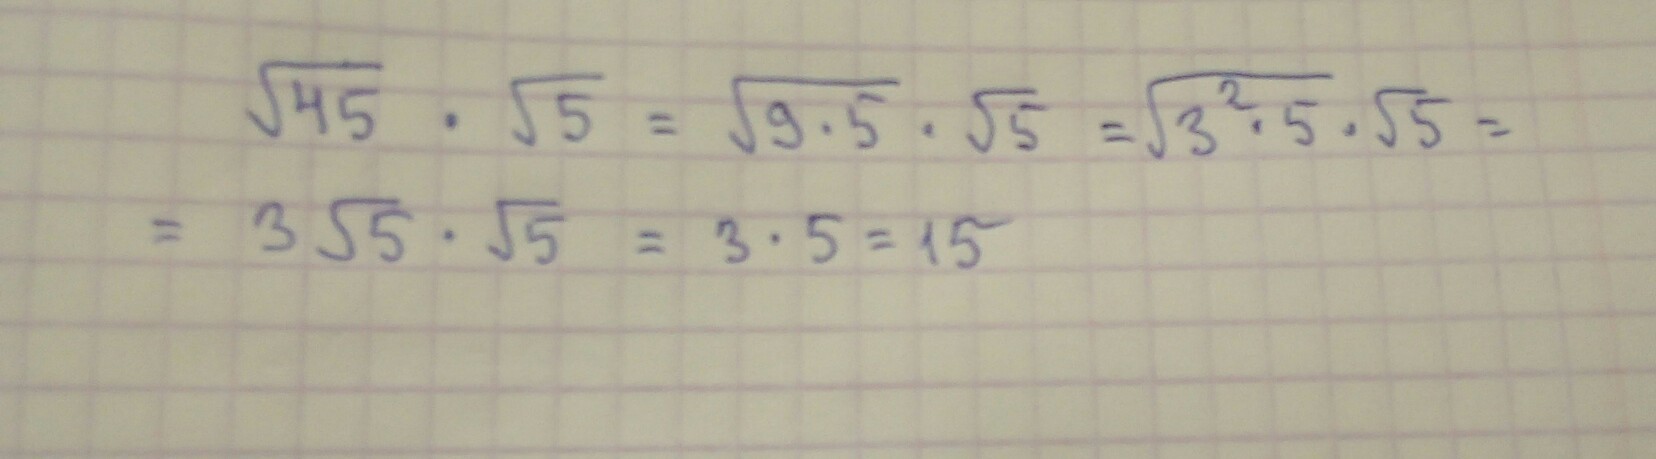 √45 · √5 = √9·5 · √5 = √3²·5 · √5 =
= 3√5 · √5 = 3 · 5 = 15